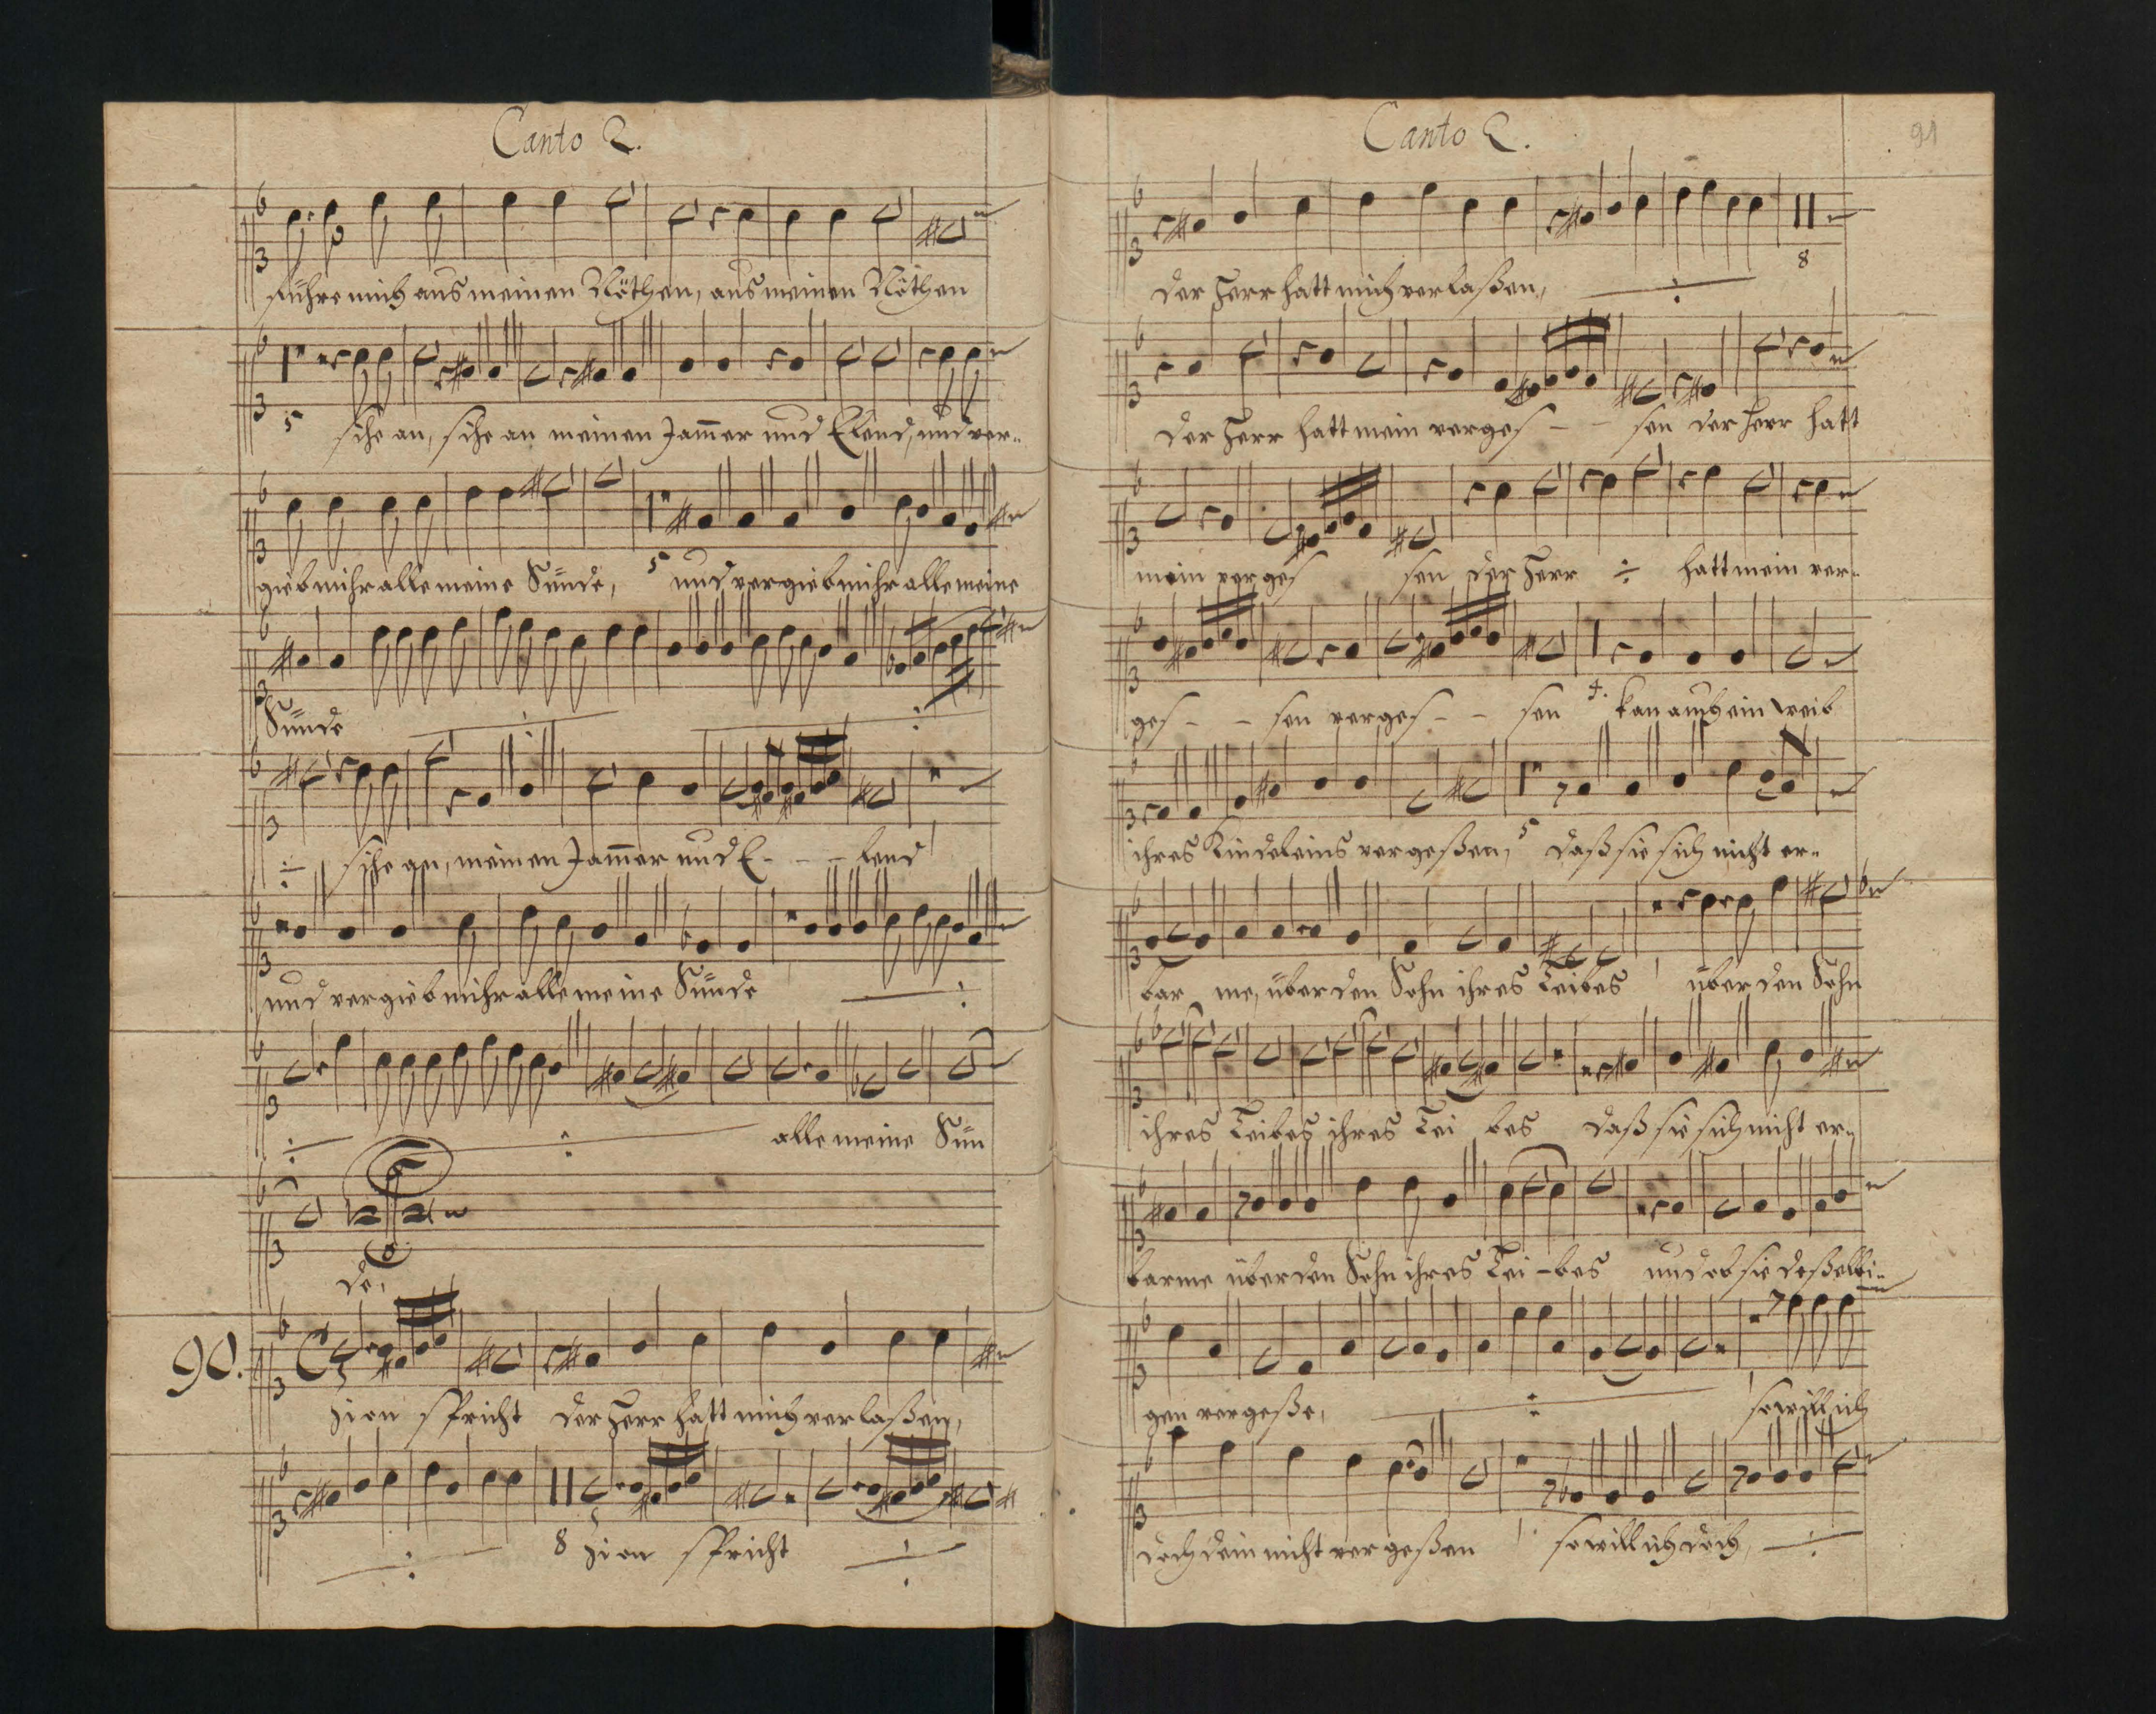 Canto 2.
führe mich aus meinen Nöthen, aus meinen Nöthen
5 sihe an, sihe an meinen Jam̄er und Elend, und ver-
gieb mihr alle meine Sünde, 5 und vergieb mihr alle meine
Sünde
sihe an, meinen Jam̄er und E - - - lend
und vergieb mihr alle meine Sünde
alle meine Sün
de,
90. Zion spricht der Herr hatt mich verlaßen,
8 Zion spricht
Canto 2.
91
8
der Herr hatt mich verlaßen,
der Herr hatt mein verges - - sen der Herr hatt
mein verges sen der Herr hatt mein ver-
ges - - sen verges - - sen 4. kan auch ein weib
ihres Kindeleins vergeßen, 5 daß sie sich nicht er-
bar me, über den Sohn ihres Leibes über den Sohn
ihres Leibes ihres Lei bes daß sie sich nicht er-
barme über den Sohn ihres Lei - bes und ob sie deßelbi-
gen vergeße, so will ich
doch dein nicht vergeßen so will ich doch,